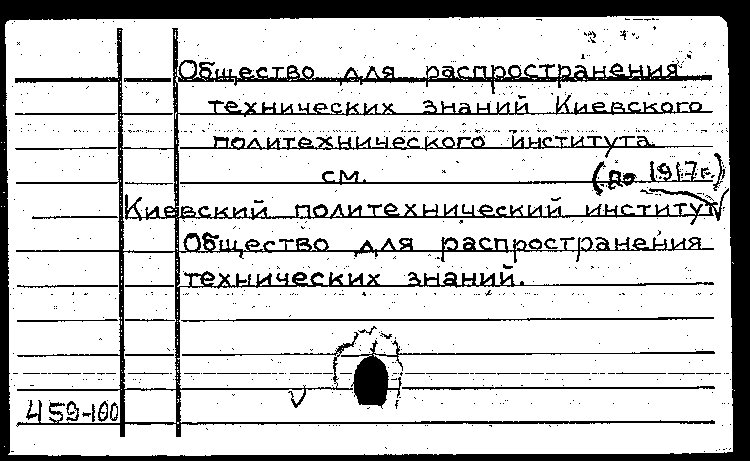 Общество для распространения
технических знаний Киевского
политехнического института
см.
(до 1917г.)
Киевский политехнический институт
Общество для распространения
технических знаний.
459-100